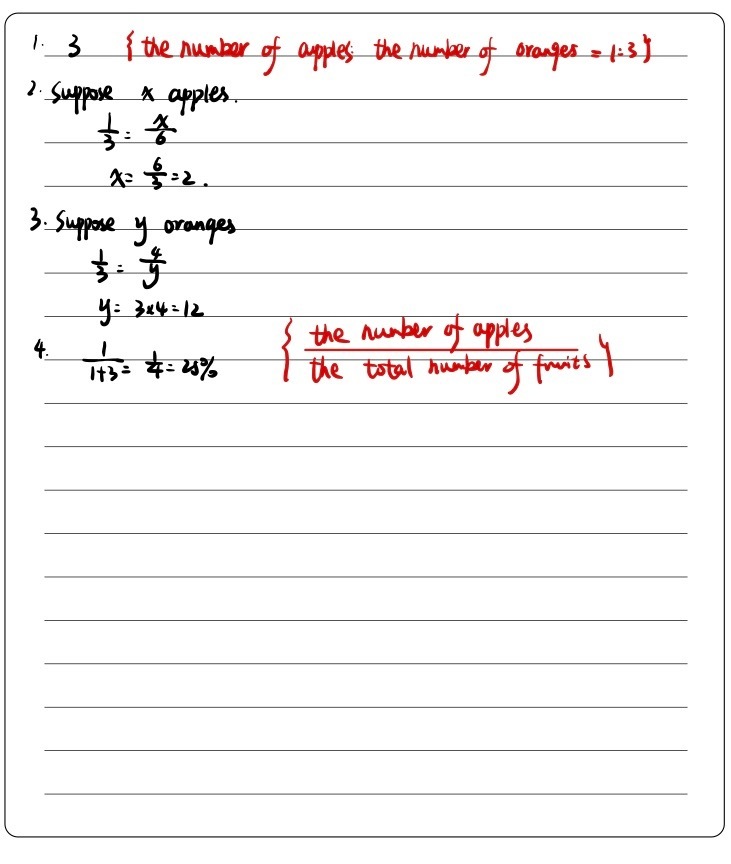 1. 3 { the number of apples: the number of oranges = 1:3 }
2. Suppose x apples.
1/3 = x/6
x = 6/3 = 2.
3. Suppose y oranges
1/3 = 4/y
y = 3×4 = 12
4. 1/(1+3) = 1/4 = 25% { the number of apples / the total number of fruits }